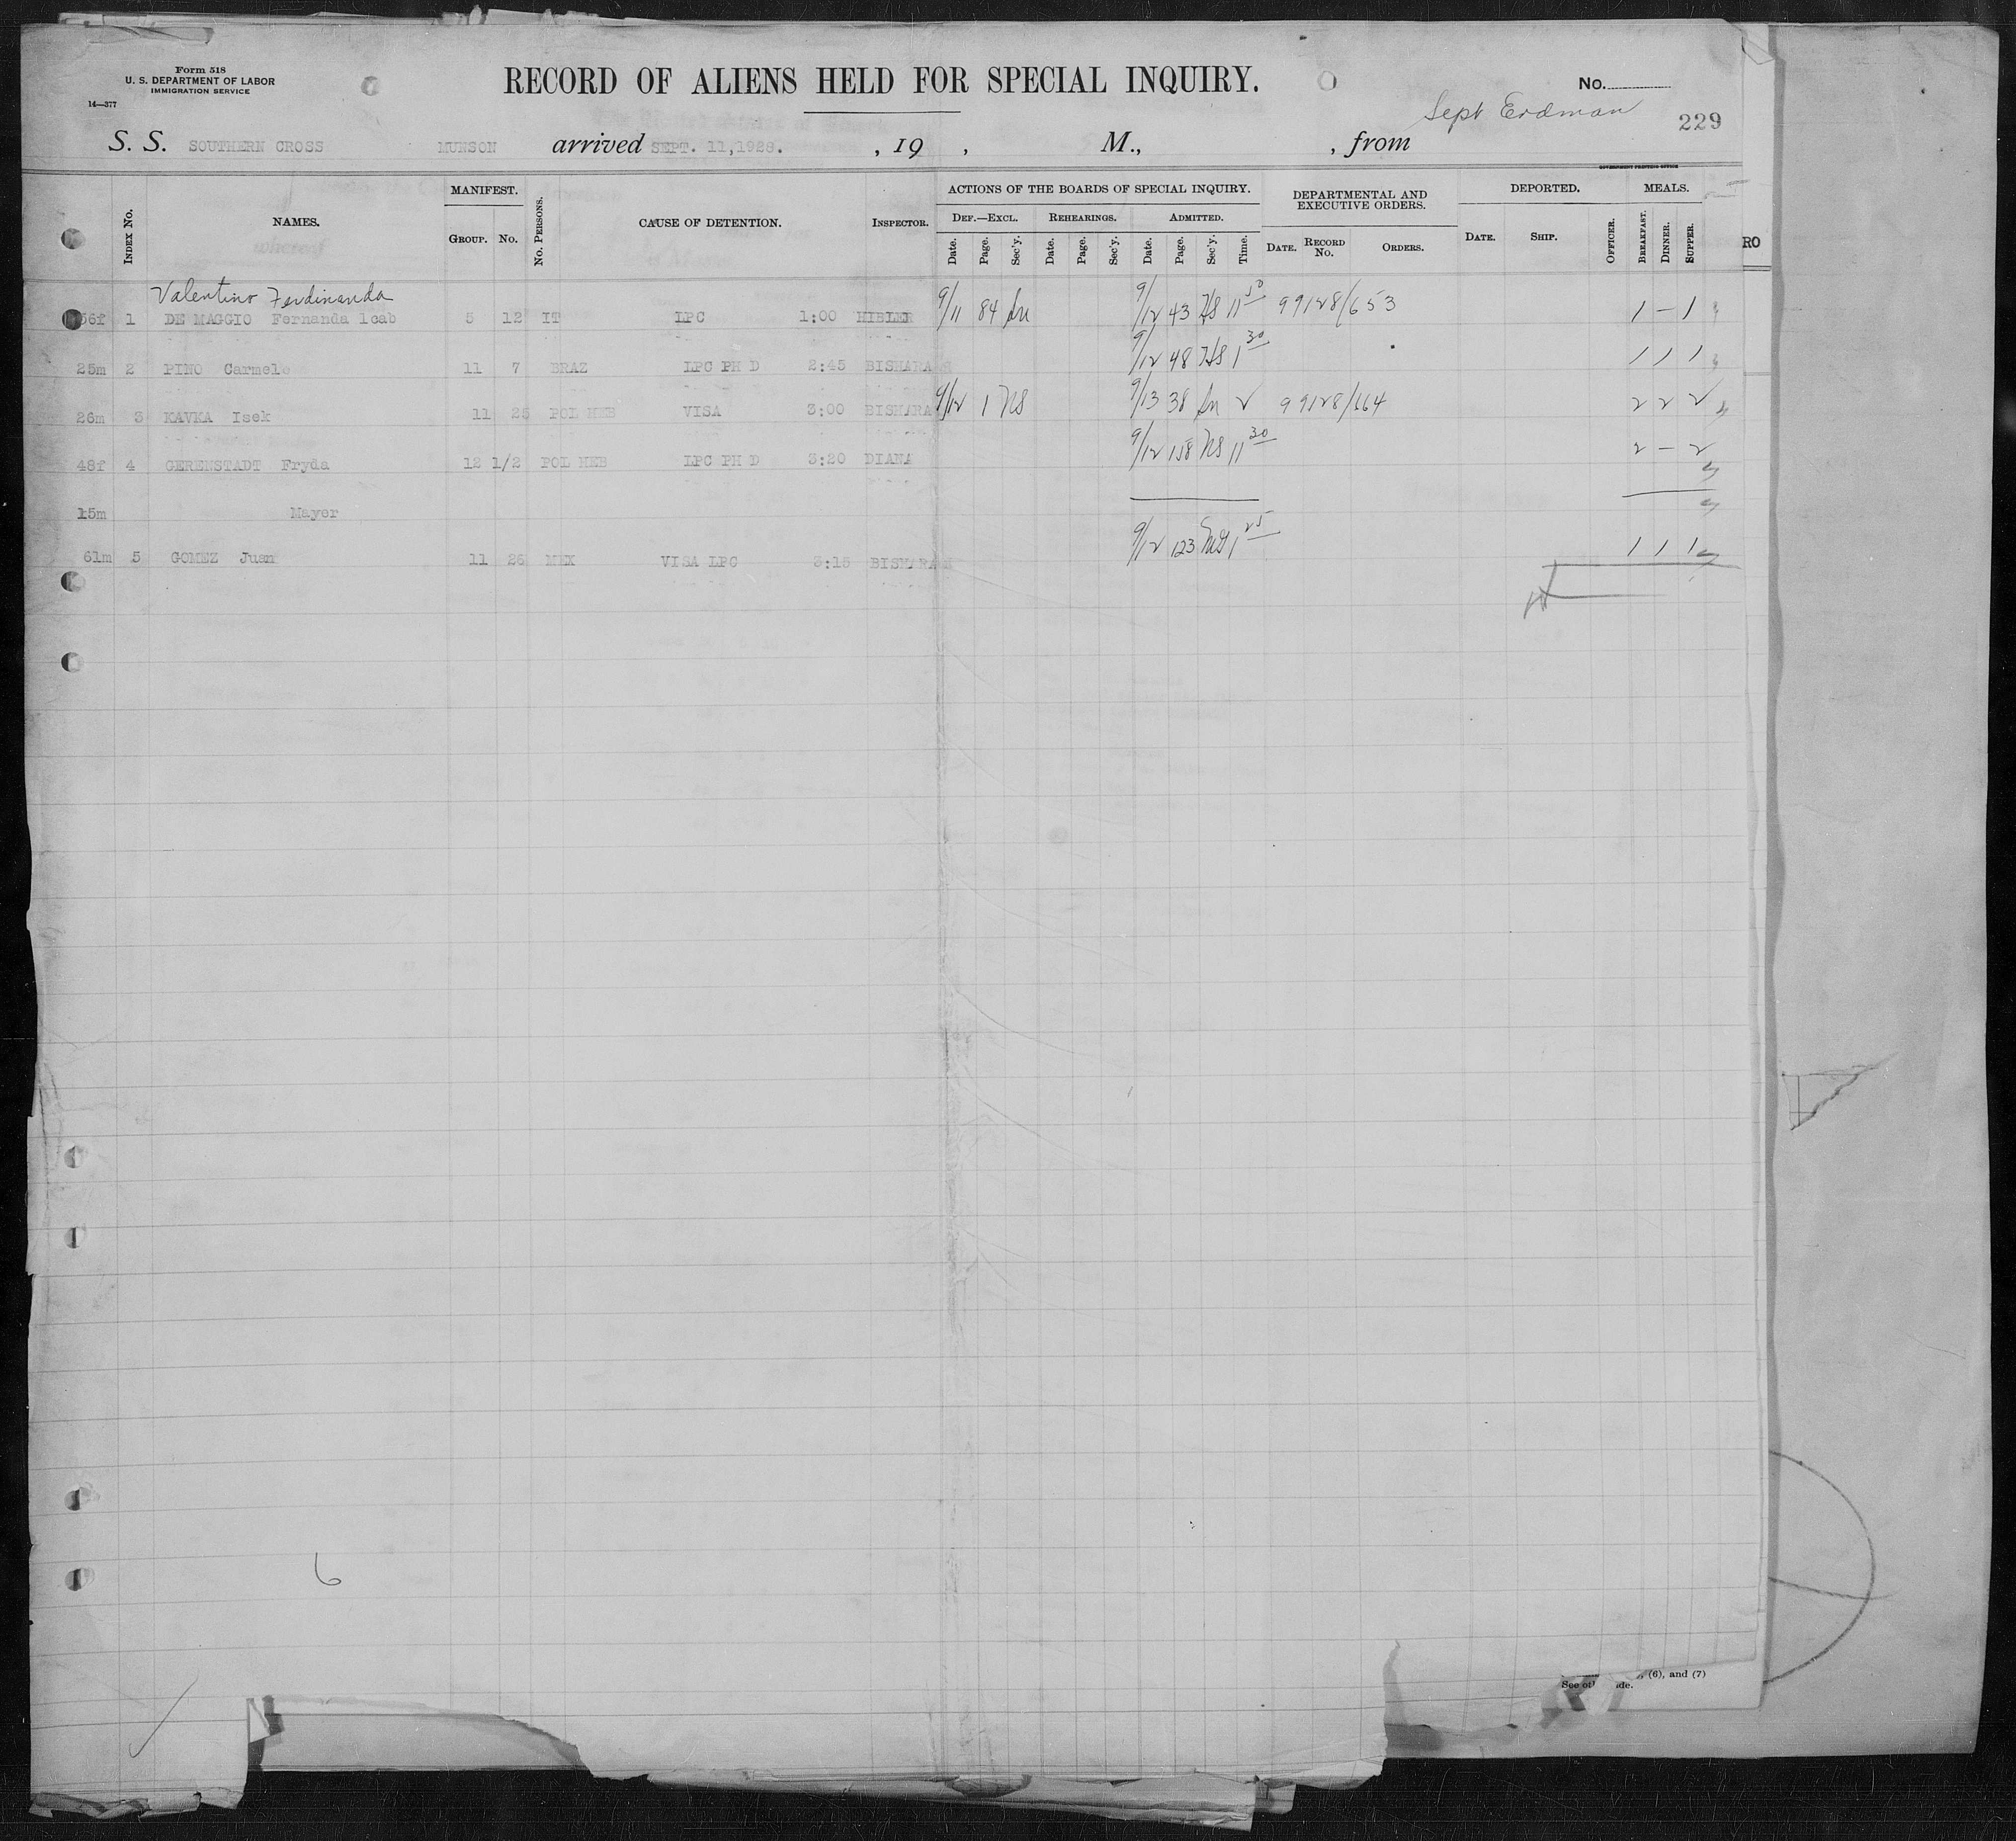 Form 518
U. S. DEPARTMENT OF LABOR
IMMIGRATION SERVICE
14—377
RECORD OF ALIENS HELD FOR SPECIAL INQUIRY.
No.
Sept Erdman
229
S. S. SOUTHERN CROSS MUNSON arrived SEPT. 11,1928. , 19 , M., , from
GOVERNMENT PRINTING OFFICE
INDEX No. NAMES. MANIFEST. GROUP. No. No. PERSONS. CAUSE OF DETENTION. INSPECTOR. ACTIONS OF THE BOARDS OF SPECIAL INQUIRY. DEF.—EXCL. Date. Page. Sec'y. REHEARINGS. Date. Page. Sec'y. ADMITTED. Date. Page. Sec'y. Time. DEPARTMENTAL AND EXECUTIVE ORDERS. DATE. RECORD No. ORDERS. DEPORTED. DATE. SHIP. OFFICER. MEALS. BREAKFAST. DINNER. SUPPER.
RO
Valentino Ferdinanda
56f 1 DE MAGGIO Fernanda 1cab 5 12 IT LPC 1:00 HIBLER 9/11 84 9/12 43 HS 11 50 99128/653 1 – 1
25m 2 PINO Carmelo 11 7 BRAZ LPC PH D 2:45 BISHARA 9/12 48 HS 1 30 1 1 1
26m 3 KAVKA Isek 11 25 POL HEB VISA 3:00 BISHARA 9/12 1 NS 9/13 38 2 99128/664 2 2 2
48f 4 GERENSTADT Fryda 12 1/2 POL HEB LPC PH D 3:20 DIANA 9/12 158 NS 11 30 2 – 2
15m Mayer
61m 5 GOMEZ Juan 11 26 MEX VISA LPC 3:15 BISHARA 9/12 123 1 25 1 1 1
6
(6), and (7)
See